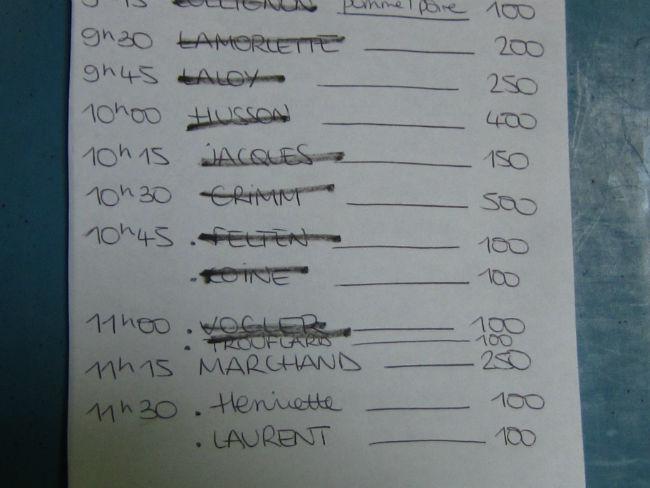 9h15 COLLIGNON pomme/poire 100
9h30 LAMORLETTE 200
9h45 LALOY 250
10h00 HUSSON 400
10h15 JACQUES 150
10h30 GRIMM 500
10h45 . FELTEN 100
. KOINE 100
11h00 . VOGLER 100
. TROUFLARD 100
11h15 MARCHAND 250
11h30 . Henriette 100
. LAURENT 100